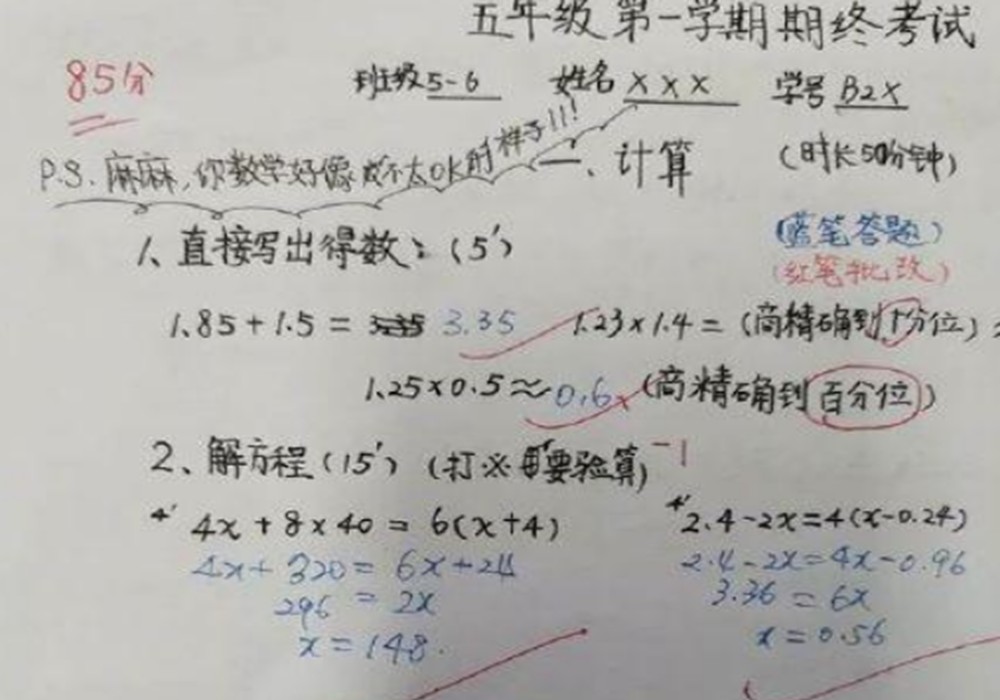 五年级 第一学期期终考试
85分
班级 5-6 姓名 XXX 学号 B2X
P.S. 麻麻,你数学好像成不太OK的样子!!!
一、计算 (时长50分钟)
1、直接写出得数:(5′)
(蓝笔答题)
(红笔批改)
1.85+1.5= 3.35 1.23×1.4= (商精确到十分位)
1.25×0.5≈0.6 (商精确到百分位)
2、解方程(15′)(打※要验算) -1
4′ 4x+8×40=6(x+4) 4′ 2.4-2x=4(x-0.24)
4x+320=6x+24 2.4-2x=4x-0.96
296=2x 3.36=6x
x=148. x=0.56